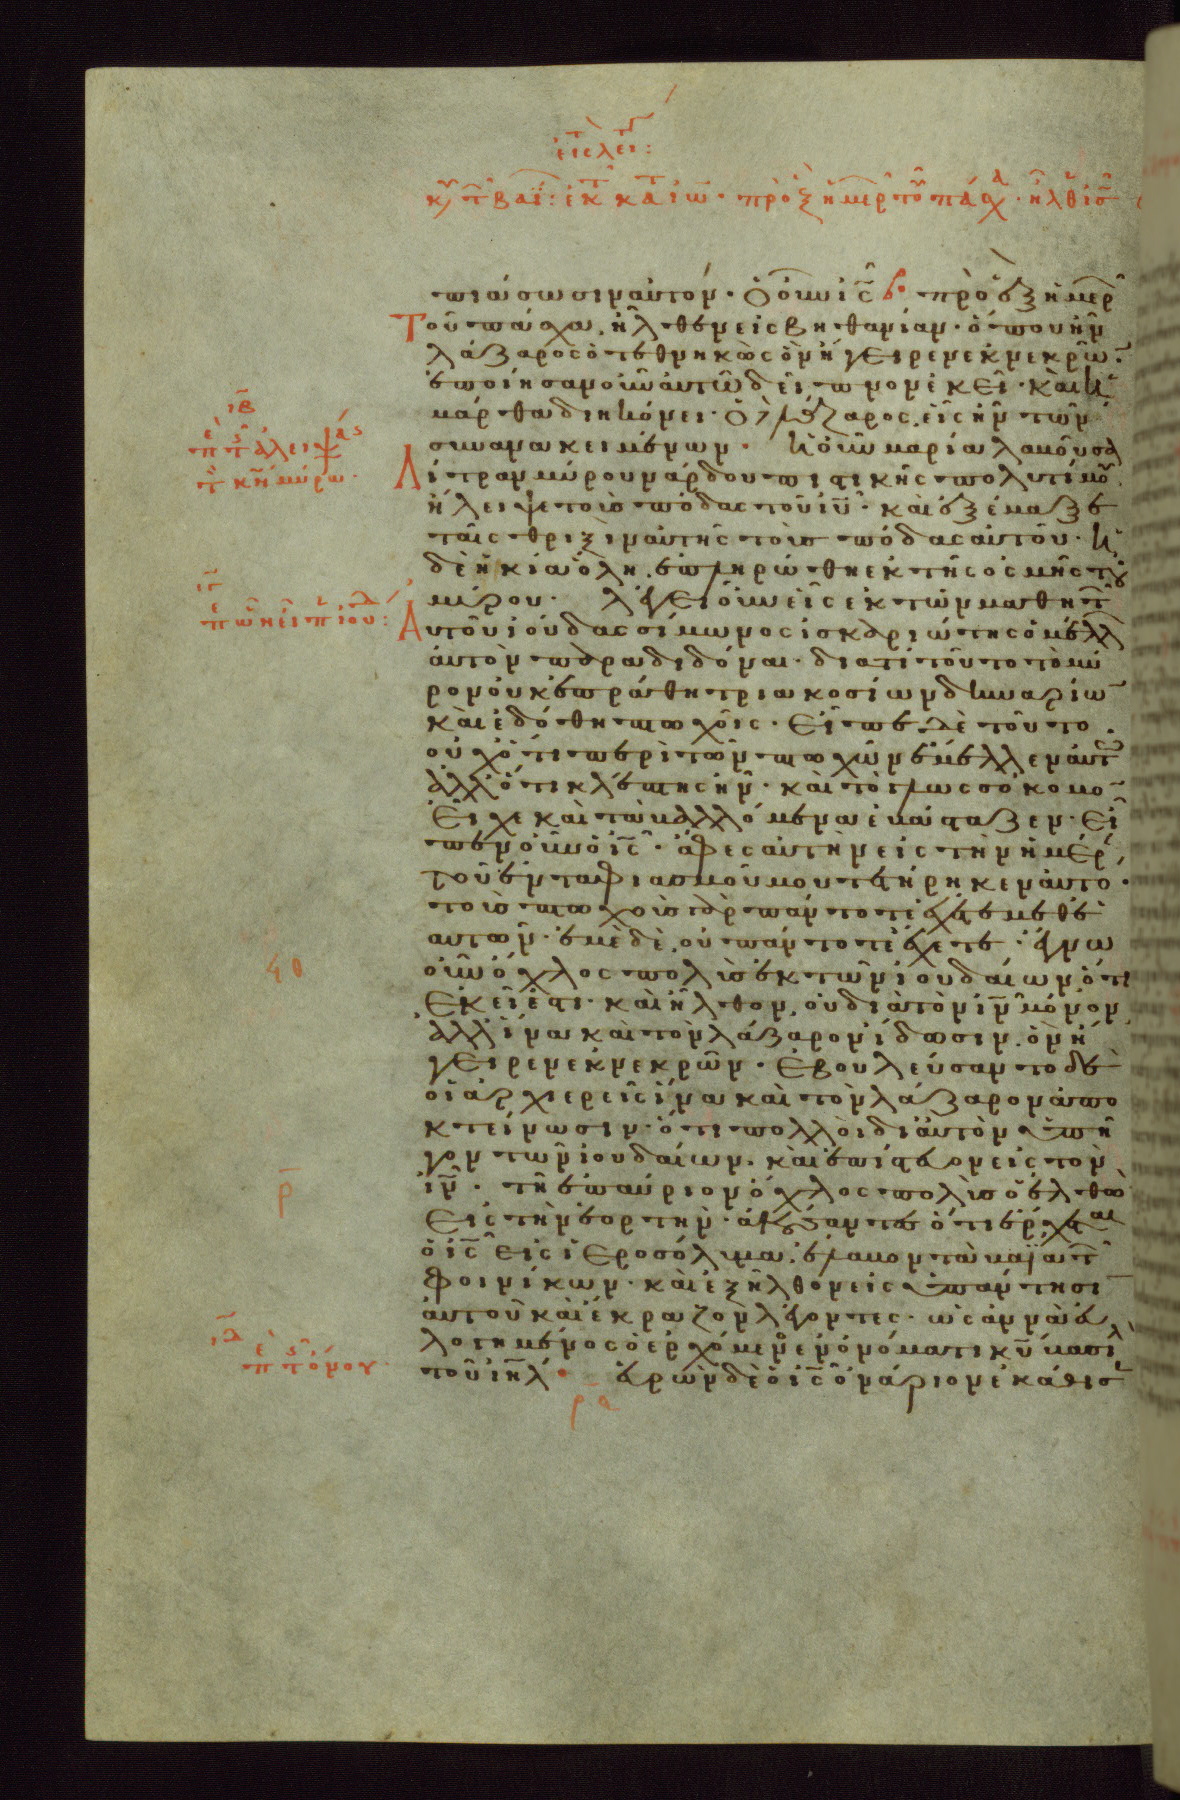 πιάσωσιν αὐτόν. ὁ οὖν ἰς πρὸ ἓξ ἡμερ
τοῦ πάσχα, ἦλθεν εἰς βηθανίαν. ὅπου ἦν
λάζαρος ὁ τεθνηκὼς ὃν ἤγειρεν ἐκ νεκρῶ
ἐποίησαν οὖν αὐτῶ δεῖπνον ἐκεῖ. καὶ ἡ
μάρθα διηκόνει. ὁ δὲ λάζαρος, εἷς ἦν τῶν
συνανακειμένων. ἡ οὖν μαρία λαβοῦσα
λίτραν μύρου νάρδου πιστικῆς πολυτίμου
ἤλειψε τοὺς πόδας τοῦ ιυ. καὶ ἐξέμαξε
ταῖς θριξὶν αὐτῆς τοὺς πόδας αὐτοῦ. ἡ
δὲ ἠκία ὅλη, ἐπληρώθη ἐκ τῆς ὀσμῆς τοῦ
μύρου. λέγει οὖν εἷς ἐκ τῶν μαθητ
αὐτοῦ ἰούδας σίμωνος ἰσκαριώτης ὁ μέλλ
αὐτὸν παραδιδόναι. διατί τοῦτο τὸ μύ
ρον οὐκ ἐπράθη τριακοσίων δηναρίω
καὶ ἐδόθη πτωχοῖς. εἶπε δὲ τοῦτο
οὐχ ὅτι περὶ τῶν πτωχῶν ἔμελλεν αὐτῶ
ἀλλ ὅτι κλέπτης ἦν. καὶ τὸ γλωσσόκομο
εἶχε καὶ τὰ βαλλόμενα ἐβάσταζεν. εἶ
πεν οὖν ὁ ις. ἄφες αὐτὴν εἰς τὴν ἡμέρ
τοῦ ἐνταφιασμοῦ μου τετήρηκεν αὐτό.
τοὺς πτωχοὺς γὰρ πάντοτε ἔχετε μεθ ἑ
αυτῶν. ἐμὲ δὲ, οὐ πάντοτε ἔχετε. ἔγνω
οὖν ὄχλος πολὺς ἐκ τῶν ἰουδαίων ὅτι
ἐκεῖ ἐστι. καὶ ἦλθον, οὐ διὰ τὸν ιν μόνον
ἀλλ ἵνα καὶ τὸν λάζαρον ἴδωσιν, ὃν ἤ
γειρεν ἐκ νεκρῶν. ἐβουλεύσαντο δὲ
οἱ ἀρχιερεῖς ἵνα καὶ τὸν λάζαρον ἀπο
κτείνωσιν. ὅτι πολλοὶ δι αὐτὸν ὑπῆ
γον τῶν ἰουδαίων. καὶ ἐπίστευον εἰς τὸν
ιν. τῇ ἐπαύριον ὄχλος πολὺς ὁ ἐλθὼ
εἰς τὴν ἑορτὴν. ἀκούσαντες ὅτι ἔρχεται
ὁ ις εἰς ἱεροσόλυμα, ἔλαβον τὰ βαΐα τ
φοινίκων. καὶ ἐξῆλθον εἰς ὑπάντησι
αὐτοῦ καὶ ἔκραζον λέγοντες. ὡσαννὰ εὐ
λογημένος ὁ ἐρχόμενος ἐν ὀνόματι κυ βασιλ
τοῦ ιηλ. εὑρὼν δὲ ὁ ις ὀνάριον ἐκάθισ